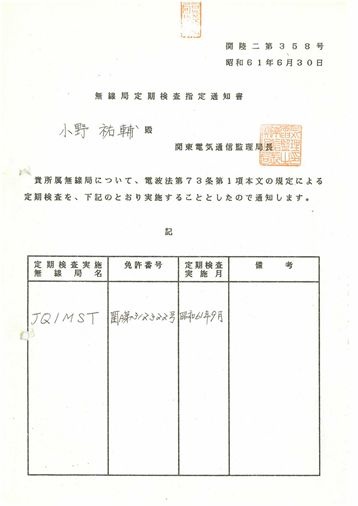 関陸二第358号
昭和61年6月30日
無線局定期検査指定通知書
小野 祐輔 殿
関東電気通信監理局長
貴所属無線局について、電波法第73条第1項本文の規定による
定期検査を、下記のとおり実施することとしたので通知します。
記
定期検査実施無線局名 免許番号 定期検査実施月 備考
JQ1MST 昭和61年9月